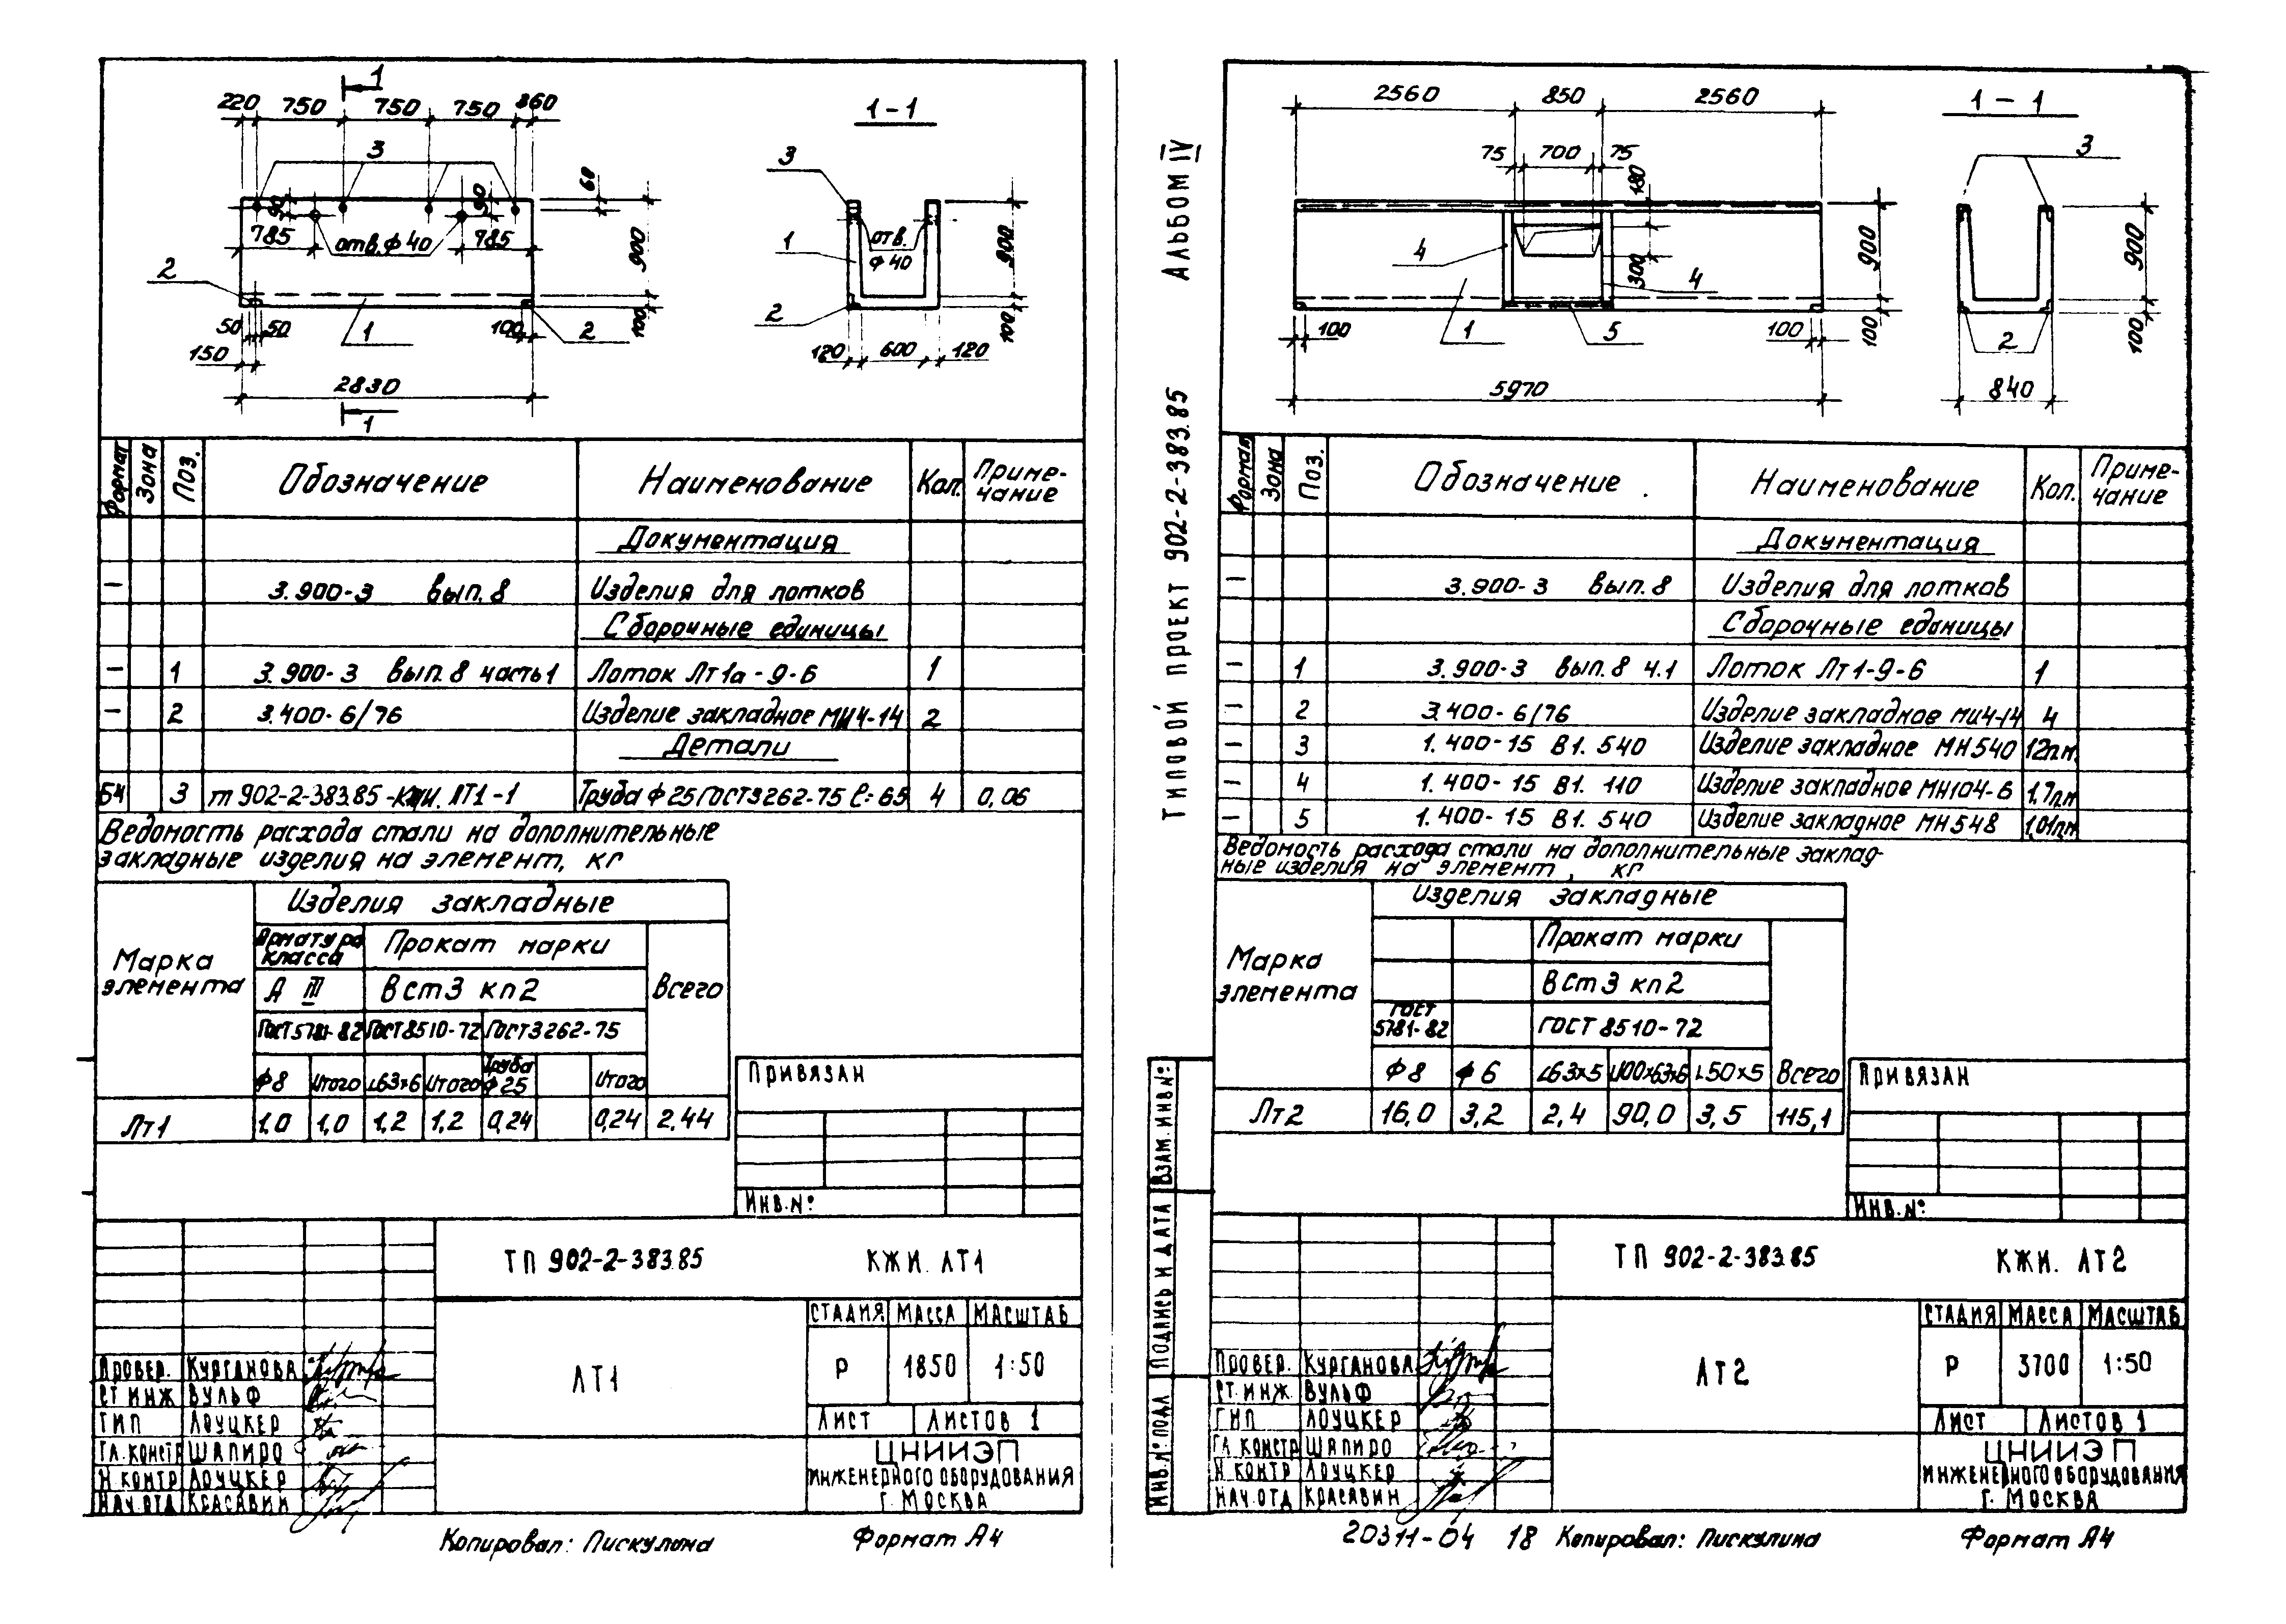 1
220 750 750 750 360
1-1
3
60
90
90
785
отв. ф 40
785
900
2
50 50
1
100
2
100
150
2830
1
3
1
отв.
ф 40
900
2
100
120 600 120
Формат
Зона
Поз.
Обозначение
Наименование
Кол.
Приме-
чание
Документация
— 3.900-3 вып. 8 Изделия для лотков
Сборочные единицы
— 1 3.900-3 вып. 8 часть 1 Лоток Лт1а-9-6 1
— 2 3.400-6/76 Изделие закладное МИ4-14 2
Детали
БЧ 3 тп 902-2-383.85-КЖИ. ЛТ1-1 Труба ф 25 ГОСТ 3262-75 ℓ=65 4 0,06
Ведомость расхода стали на дополнительные
закладные изделия на элемент, кг
Марка
элемента
Изделия закладные
Арматура
класса
Прокат марки
А III
ВСт3 кп2
Всего
ГОСТ 5781-82 ГОСТ 8510-72 ГОСТ 3262-75
ф8 Итого ∟63×6 Итого Труба ф25 Итого
Лт1 1,0 1,0 1,2 1,2 0,24 0,24 2,44
Привязан
Инв. №
ТП 902-2-383.85 КЖИ. ЛТ1
ЛТ1
Стадия Масса Масштаб
Р 1850 1:50
Лист Листов 1
ЦНИИЭП
инженерного оборудования
г. Москва
Провер. Курганова
Ст. инж Вульф
ГИП Лоуцкер
Гл. констр Шапиро
Н. контр Лоуцкер
Нач. отд Красавин
Копировал: Пискулина Формат А4
Альбом IV
Типовой проект 902-2-383.85
2560 850 2560
1-1
75 700 75
180
3
4
300
4
900
900
100
1
5
100
100
2
100
5970
840
Формат
Зона
Поз.
Обозначение
Наименование
Кол.
Приме-
чание
Документация
— 3.900-3 вып. 8 Изделия для лотков
Сборочные единицы
— 1 3.900-3 вып. 8 ч.1 Лоток Лт1-9-6 1
— 2 3.400-6/76 Изделие закладное МИ4-14 4
— 3 1.400-15 В1. 540 Изделие закладное МН540 12п.м.
— 4 1.400-15 В1. 110 Изделие закладное МН104-6 1,7п.м
— 5 1.400-15 В1. 540 Изделие закладное МН548 1,01п.м
Ведомость расхода стали на дополнительные заклад-
ные изделия на элемент, кг
Марка
элемента
Изделия закладные
Прокат марки
ВСт3 кп2
ГОСТ
5781-82
ГОСТ 8510-72
ф8 ф6 ∟63×5 ∟100×63×6 ∟50×5 Всего
Лт2 16,0 3,2 2,4 90,0 3,5 115,1
Привязан
Инв. №
Взам. инв №
Подпись и дата
Инв. № подл
ТП 902-2-383.85 КЖИ. ЛТ2
ЛТ2
Стадия Масса Масштаб
Р 3700 1:50
Лист Листов 1
ЦНИИЭП
инженерного оборудования
г. Москва
Провер. Курганова
Ст. инж. Вульф
ГИП Лоуцкер
Гл. констр Шапиро
Н. контр Лоуцкер
Нач. отд Красавин
20311-04 18 Копировал: Пискулина Формат А4